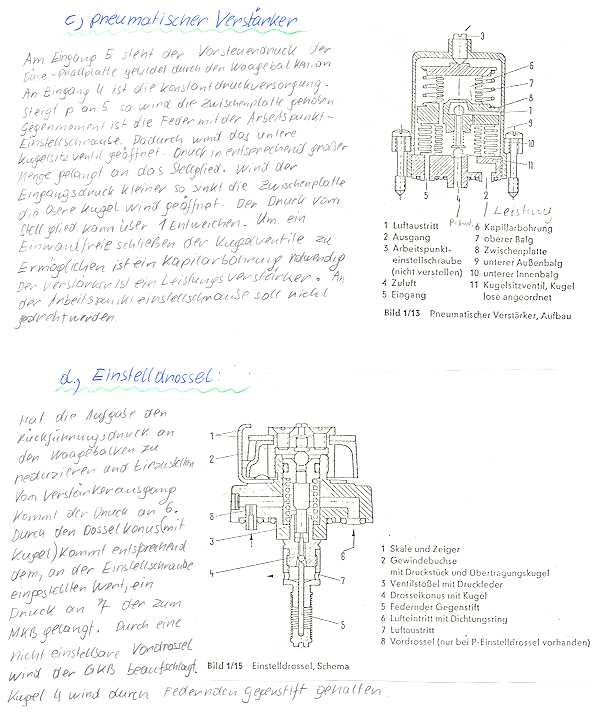 c) pneumatischer Verstärker
Am Eingang 5 steht der Vorsteuerdruck der
Düse-Prallplatte gebildet durch den Waagebalken an
An Eingang 4 ist die Konstantdruckversorgung.
Steigt p an 5 so wird die Zwischenplatte gehoben
Gegenmoment ist die Feder mit der Arbeitspunkt-
Einstellschraube. Dadurch wird das untere
Kugelsitzventil geöffnet. Druck in entsprechend großer
Menge gelangt an das Stellglied. Wird der
Eingangsdruck kleiner so sinkt die Zwischenplatte
die obere Kugel wird geöffnet. Der Druck vom
Stellglied kann über 1 Entweichen. Um ein
Einwandfreie schließen der Kugelventile zu
Ermöglichen ist ein Kapilarbohrung notwendig
Der Verstärker ist ein Leistungsverstärker. An
der Arbeitspunkteinstellschraube soll nicht
gedreht werden
3
6
7
8
1
9
10
11
5 4 2
Leistung
1 Luftaustritt
2 Ausgang
3 Arbeitspunkt-
einstellschraube
(nicht verstellen)
4 Zuluft
5 Eingang
6 Kapillarbohrung
7 oberer Balg
8 Zwischenplatte
9 unterer Außenbalg
10 unterer Innenbalg
11 Kugelsitzventil, Kugel
lose angeordnet
Bild 1/13 Pneumatischer Verstärker, Aufbau
d) Einstelldrossel:
Hat die Aufgabe den
Rückführungsdruck an
den Waagebalken zu
reduzieren und Einzustellen
Vom Verstärkerausgang
kommt der Druck an 6.
Durch den Dosselkonus (mit
Kugel) kommt entsprechend
dem, an der Einstellschraube
eingestellten Wert, ein
Druck an 7 der zum
MKB gelangt. Durch eine
nicht einstellbare Vordrossel
wird der GKB beaufschlagt.
Kugel 4 wird durch Federnden gegenstift gehalten.
1
2
8
3
6
4
7
5
1 Skale und Zeiger
2 Gewindebuchse
mit Druckstück und Übertragungskugel
3 Ventilstößel mit Druckfeder
4 Drosselkonus mit Kugel
5 Federnder Gegenstift
6 Lufteintritt mit Dichtungsring
7 Luftaustritt
8 Vordrossel (nur bei P-Einstelldrossel vorhanden)
Bild 1/15 Einstelldrossel, Schema